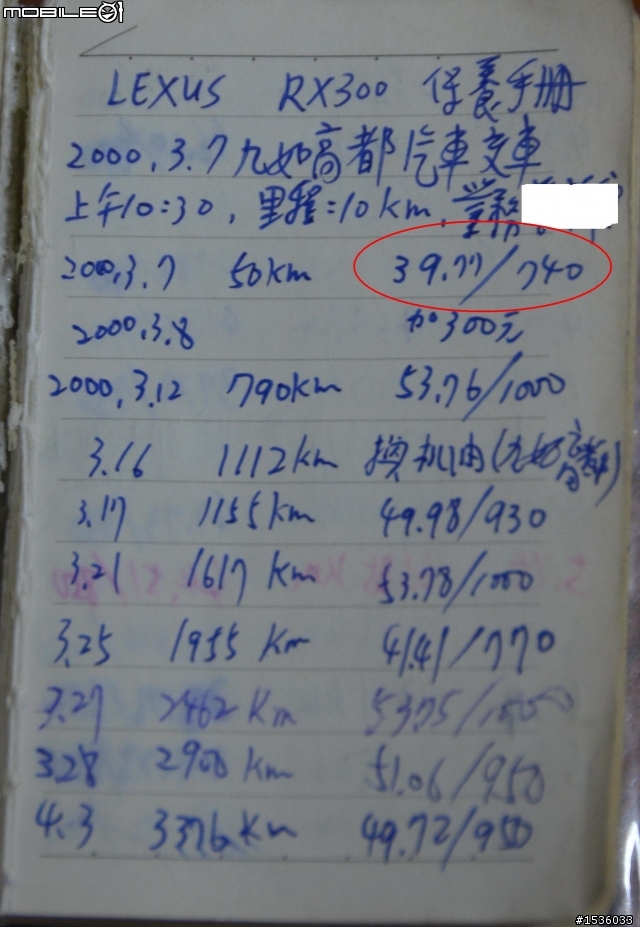 MOBILE01
LEXUS RX300 保養手册
2000.3.7 九如高都汽車交車
上午10:30, 里程:10km, 營務
2000.3.7 50km 39.77/740
2000.3.8 加300元
2000.3.12 790km 53.76/1000
3.16 1112km 換机油(九如高都)
3.17 1155km 49.98/930
3.21 1617km 53.78/1000
3.25 1955km 41.41/770
3.27 2462km 53.75/1000
3.28 2900km 51.06/950
4.3 3376km 49.72/950
#1536033